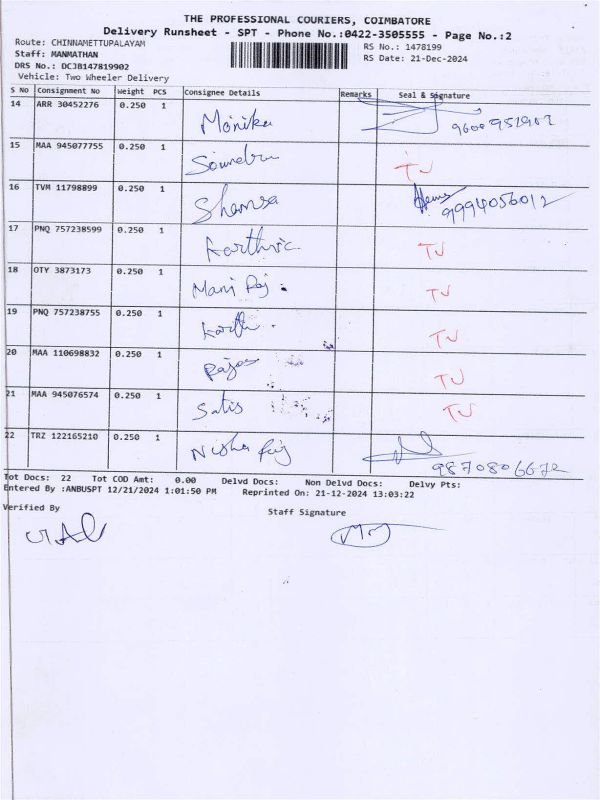 THE PROFESSIONAL COURIERS, COIMBATORE
Delivery Runsheet - SPT - Phone No.:0422-3505555 - Page No.:2
Route: CHINNAMETTUPALAYAM
RS No.: 1478199
Staff: MANMATHAN
RS Date: 21-Dec-2024
DRS No.: DCJB147819902
Vehicle: Two Wheeler Delivery
S No Consignment No Weight PCS Consignee Details Remarks Seal & Signature
14 ARR 30452276 0.250 1 Monika
15 MAA 945077755 0.250 1 TJ
16 TVM 11798899 0.250 1 9994056012
17 PNQ 757238599 0.250 1 Karthic TJ
18 OTY 3873173 0.250 1 Mani Raj TJ
19 PNQ 757238755 0.250 1 TJ
20 MAA 110698832 0.250 1 TJ
21 MAA 945076574 0.250 1 Satis TJ
22 TRZ 122165210 0.250 1 Nisha 9870806672
Tot Docs: 22 Tot COD Amt: 0.00 Delvd Docs: Non Delvd Docs: Delvy Pts:
Entered By :ANBUSPT 12/21/2024 1:01:50 PM Reprinted On: 21-12-2024 13:03:22
Verified By
Staff Signature